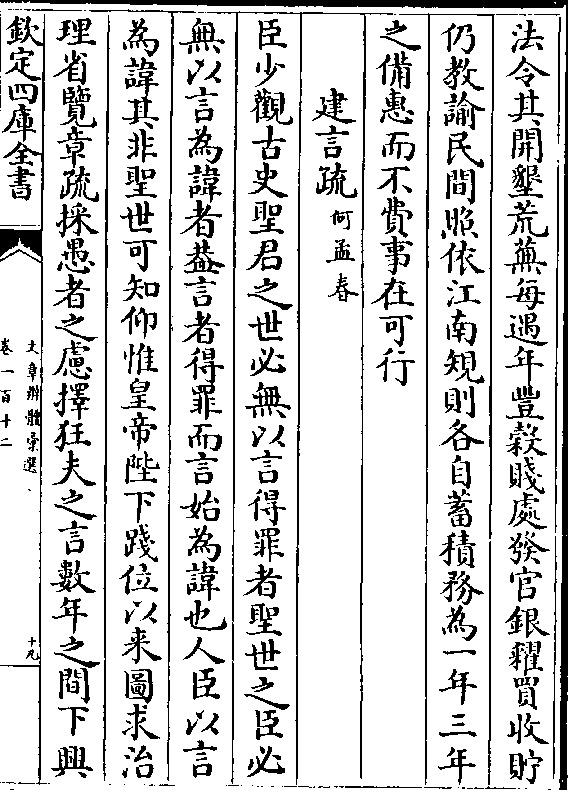 法令其開墾荒蕪每遇年豐穀賤處發官銀糴買收貯
仍教諭民間照依江南規則各自蓄積務為一年三年
之備惠而不費事在可行
建言疏何孟春
臣少觀古史聖君之世必無以言得罪者聖世之臣必
無以言為諱者葢言者得罪而言始為諱也人臣以言
為諱其非聖世可知仰惟皇帝陛下踐位以來圖求治
理省覽章疏採愚者之慮擇狂夫之言數年之間下興
欽定四庫全書
文章辨體彙選
卷一百十二
十九